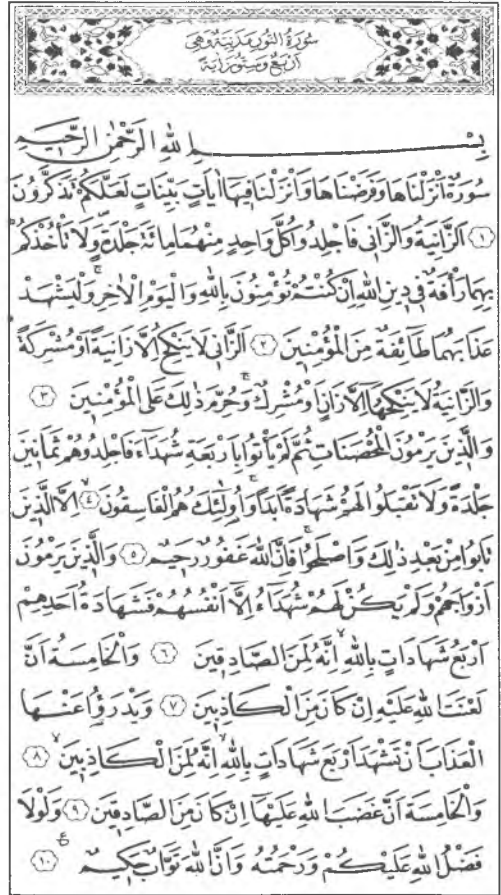 سُورَةُ النُّورِ مَدَنِيَّةٌ وَهِيَ
اَرْبَعٌ وَسِتُّونَ اٰيَةً
بِسْمِ اللهِ الرَّحْمٰنِ الرَّحِيمِ
سُورَةٌ اَنْزَلْنَاهَا وَفَرَضْنَاهَا وَاَنْزَلْنَا فِيهَا اٰيَاتٍ بَيِّنَاتٍ لَعَلَّكُمْ تَذَكَّرُونَ
﴿١﴾ اَلزَّانِيَةُ وَالزَّانِي فَاجْلِدُوا كُلَّ وَاحِدٍ مِنْهُمَا مِائَةَ جَلْدَةٍ وَلَا تَأْخُذْكُمْ
بِهِمَا رَأْفَةٌ فِي دِينِ اللهِ اِنْ كُنْتُمْ تُؤْمِنُونَ بِاللهِ وَالْيَوْمِ الْاٰخِرِ وَلْيَشْهَدْ
عَذَابَهُمَا طَٓائِفَةٌ مِنَ الْمُؤْمِنِينَ ﴿٢﴾ اَلزَّانِي لَا يَنْكِحُ اِلَّا زَانِيَةً اَوْ مُشْرِكَةً
وَالزَّانِيَةُ لَا يَنْكِحُهَٓا اِلَّا زَانٍ اَوْ مُشْرِكٌ وَحُرِّمَ ذٰلِكَ عَلَى الْمُؤْمِنِينَ ﴿٣﴾
وَالَّذِينَ يَرْمُونَ الْمُحْصَنَاتِ ثُمَّ لَمْ يَأْتُوا بِاَرْبَعَةِ شُهَدَٓاءَ فَاجْلِدُوهُمْ ثَمَانِينَ
جَلْدَةً وَلَا تَقْبَلُوا لَهُمْ شَهَادَةً اَبَدًا وَاُولٰٓئِكَ هُمُ الْفَاسِقُونَ ﴿٤﴾ اِلَّا الَّذِينَ
تَابُوا مِنْ بَعْدِ ذٰلِكَ وَاَصْلَحُوا فَاِنَّ اللهَ غَفُورٌ رَحِيمٌ ﴿٥﴾ وَالَّذِينَ يَرْمُونَ
اَزْوَاجَهُمْ وَلَمْ يَكُنْ لَهُمْ شُهَدَٓاءُ اِلَّٓا اَنْفُسُهُمْ فَشَهَادَةُ اَحَدِهِمْ
اَرْبَعُ شَهَادَاتٍ بِاللهِ اِنَّهُ لَمِنَ الصَّادِقِينَ ﴿٦﴾ وَالْخَامِسَةُ اَنَّ
لَعْنَتَ اللهِ عَلَيْهِ اِنْ كَانَ مِنَ الْكَاذِبِينَ ﴿٧﴾ وَيَدْرَؤُا عَنْهَا
الْعَذَابَ اَنْ تَشْهَدَ اَرْبَعَ شَهَادَاتٍ بِاللهِ اِنَّهُ لَمِنَ الْكَاذِبِينَ ﴿٨﴾
وَالْخَامِسَةَ اَنَّ غَضَبَ اللهِ عَلَيْهَٓا اِنْ كَانَ مِنَ الصَّادِقِينَ ﴿٩﴾ وَلَوْلَا
فَضْلُ اللهِ عَلَيْكُمْ وَرَحْمَتُهُ وَاَنَّ اللهَ تَوَّابٌ حَكِيمٌ ﴿١٠﴾